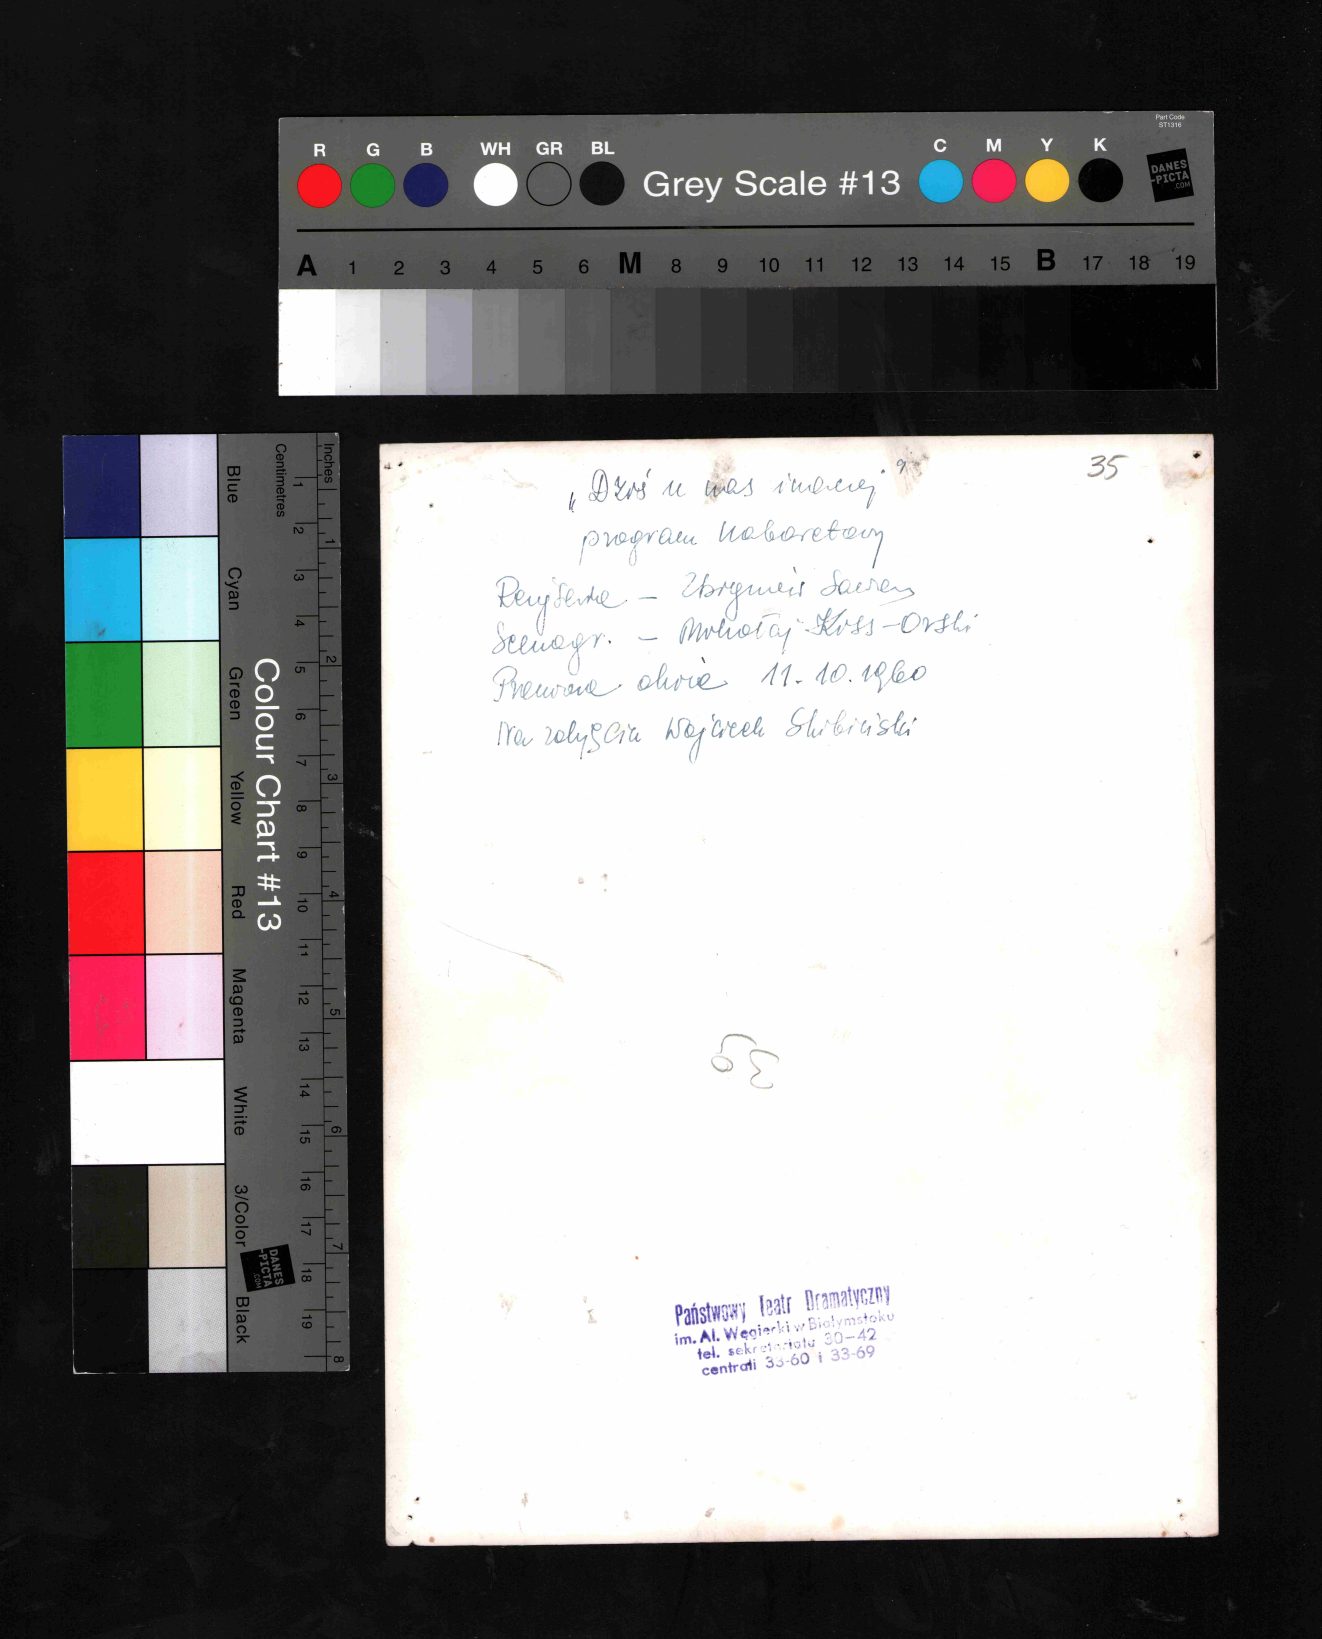 Part Code
ST1316
R G B WH GR BL Grey Scale #13 C M Y K
DANES
-PICTA
.COM
A 1 2 3 4 5 6 M 8 9 10 11 12 13 14 15 B 17 18 19
Colour Chart #13
Blue Cyan Green Yellow Red Magenta White 3/Color Black
Centimetres
1 2 3 4 5 6 7 8 9 10 11 12 13 14 15 16 17 18 19
Inches
1 2 3 4 5 6 7 8
DANES
-PICTA
.COM
35
„Dziś u nas inaczej”
program kabaretowy
Reżyseria – Zbigniew
Scenogr. – Mikołaj Koss-Orski
11.10.1960
Na zdjęciu Wojciech Skibiński
Państwowy Teatr Dramatyczny
im. Al. Węgierki w Białymstoku
tel. sekretariatu 30-42
centrali 33-60 i 33-69